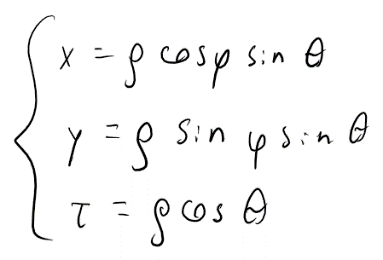 x = ρ cosφ sin θ
y = ρ sin φ sin θ
τ = ρ cos θ